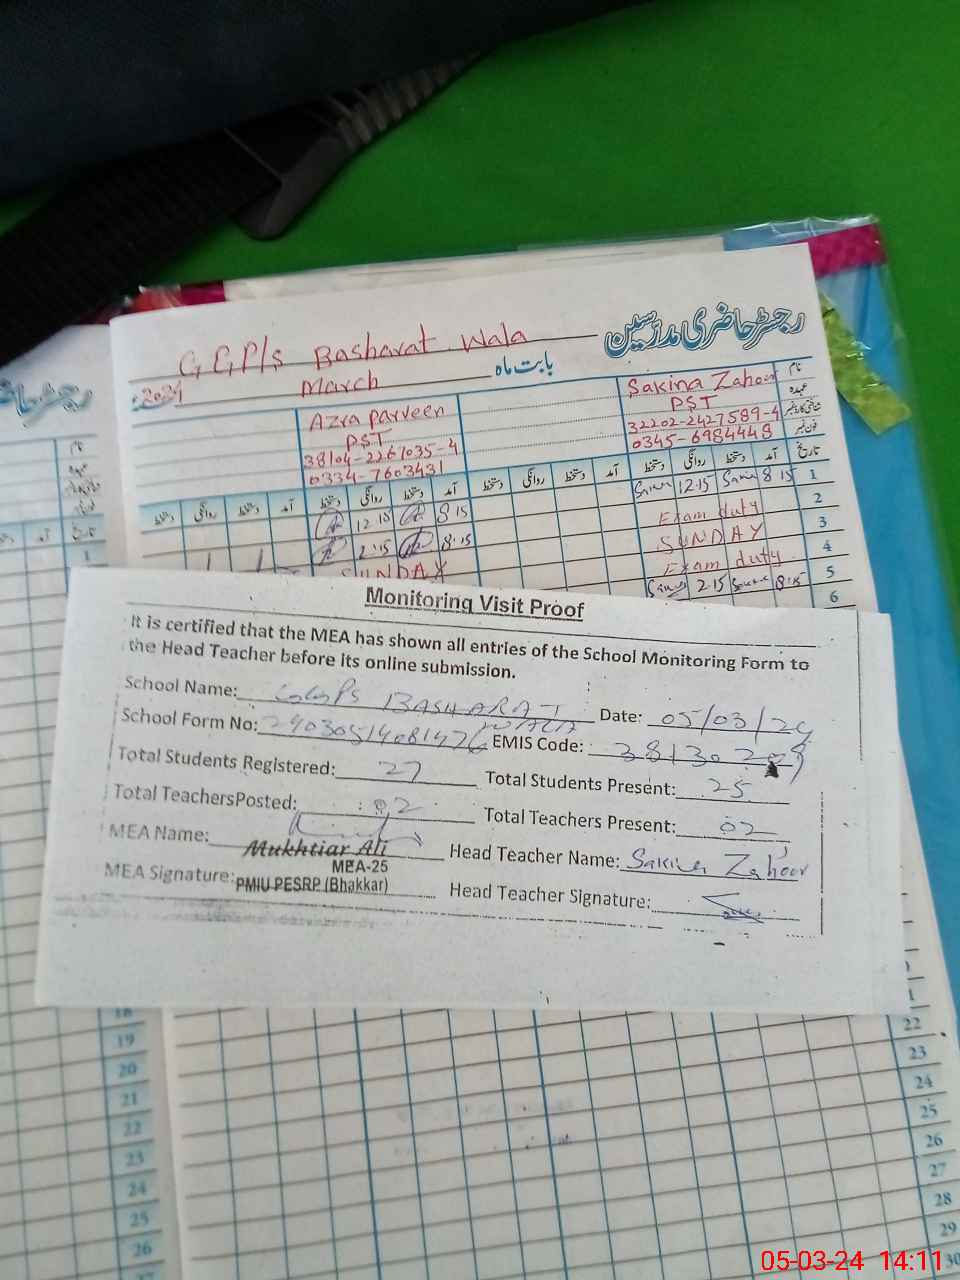 رجسٹر حاضری مدرسین
G GP/s Basharat Wala
بابت ماہ
March
2024
Sakina Zahoor
نام
Azra parveen
PST
عہدہ
PST
32202-2427589-4
شناختی کارڈ نمبر
38104-2267035-4
0345-6984448
فون نمبر
0334-7603431
تاریخ
آمد دستخط روانگی دستخط آمد دستخط روانگی دستخط آمد دستخط روانگی دستخط آمد دستخط روانگی دستخط
12.15 8 15 1
12.15 8 15
Exam duty 2
2.15 8.15
SUNDAY 3
SUNDAY
Exam duty 4
2.15 8.15 5
6
Monitoring Visit Proof
It is certified that the MEA has shown all entries of the School Monitoring Form to
the Head Teacher before its online submission.
School Name: GGPS BASHARAT WALA Date: 05/03/24
School Form No: EMIS Code:
Total Students Registered: 27 Total Students Present: 25
Total TeachersPosted: 02 Total Teachers Present: 02
MEA Name: Mukhtiar Ali Head Teacher Name: Sakina Zahoor
MEA-25
MEA Signature: PMIU PESRP (Bhakkar) Head Teacher Signature:
رجسٹر حا
نام
عہدہ
تاریخ
آمد
1
18
19
20
21
22
23
24
25
26
22
23
24
25
26
27
28
29
30
05-03-24 14:11